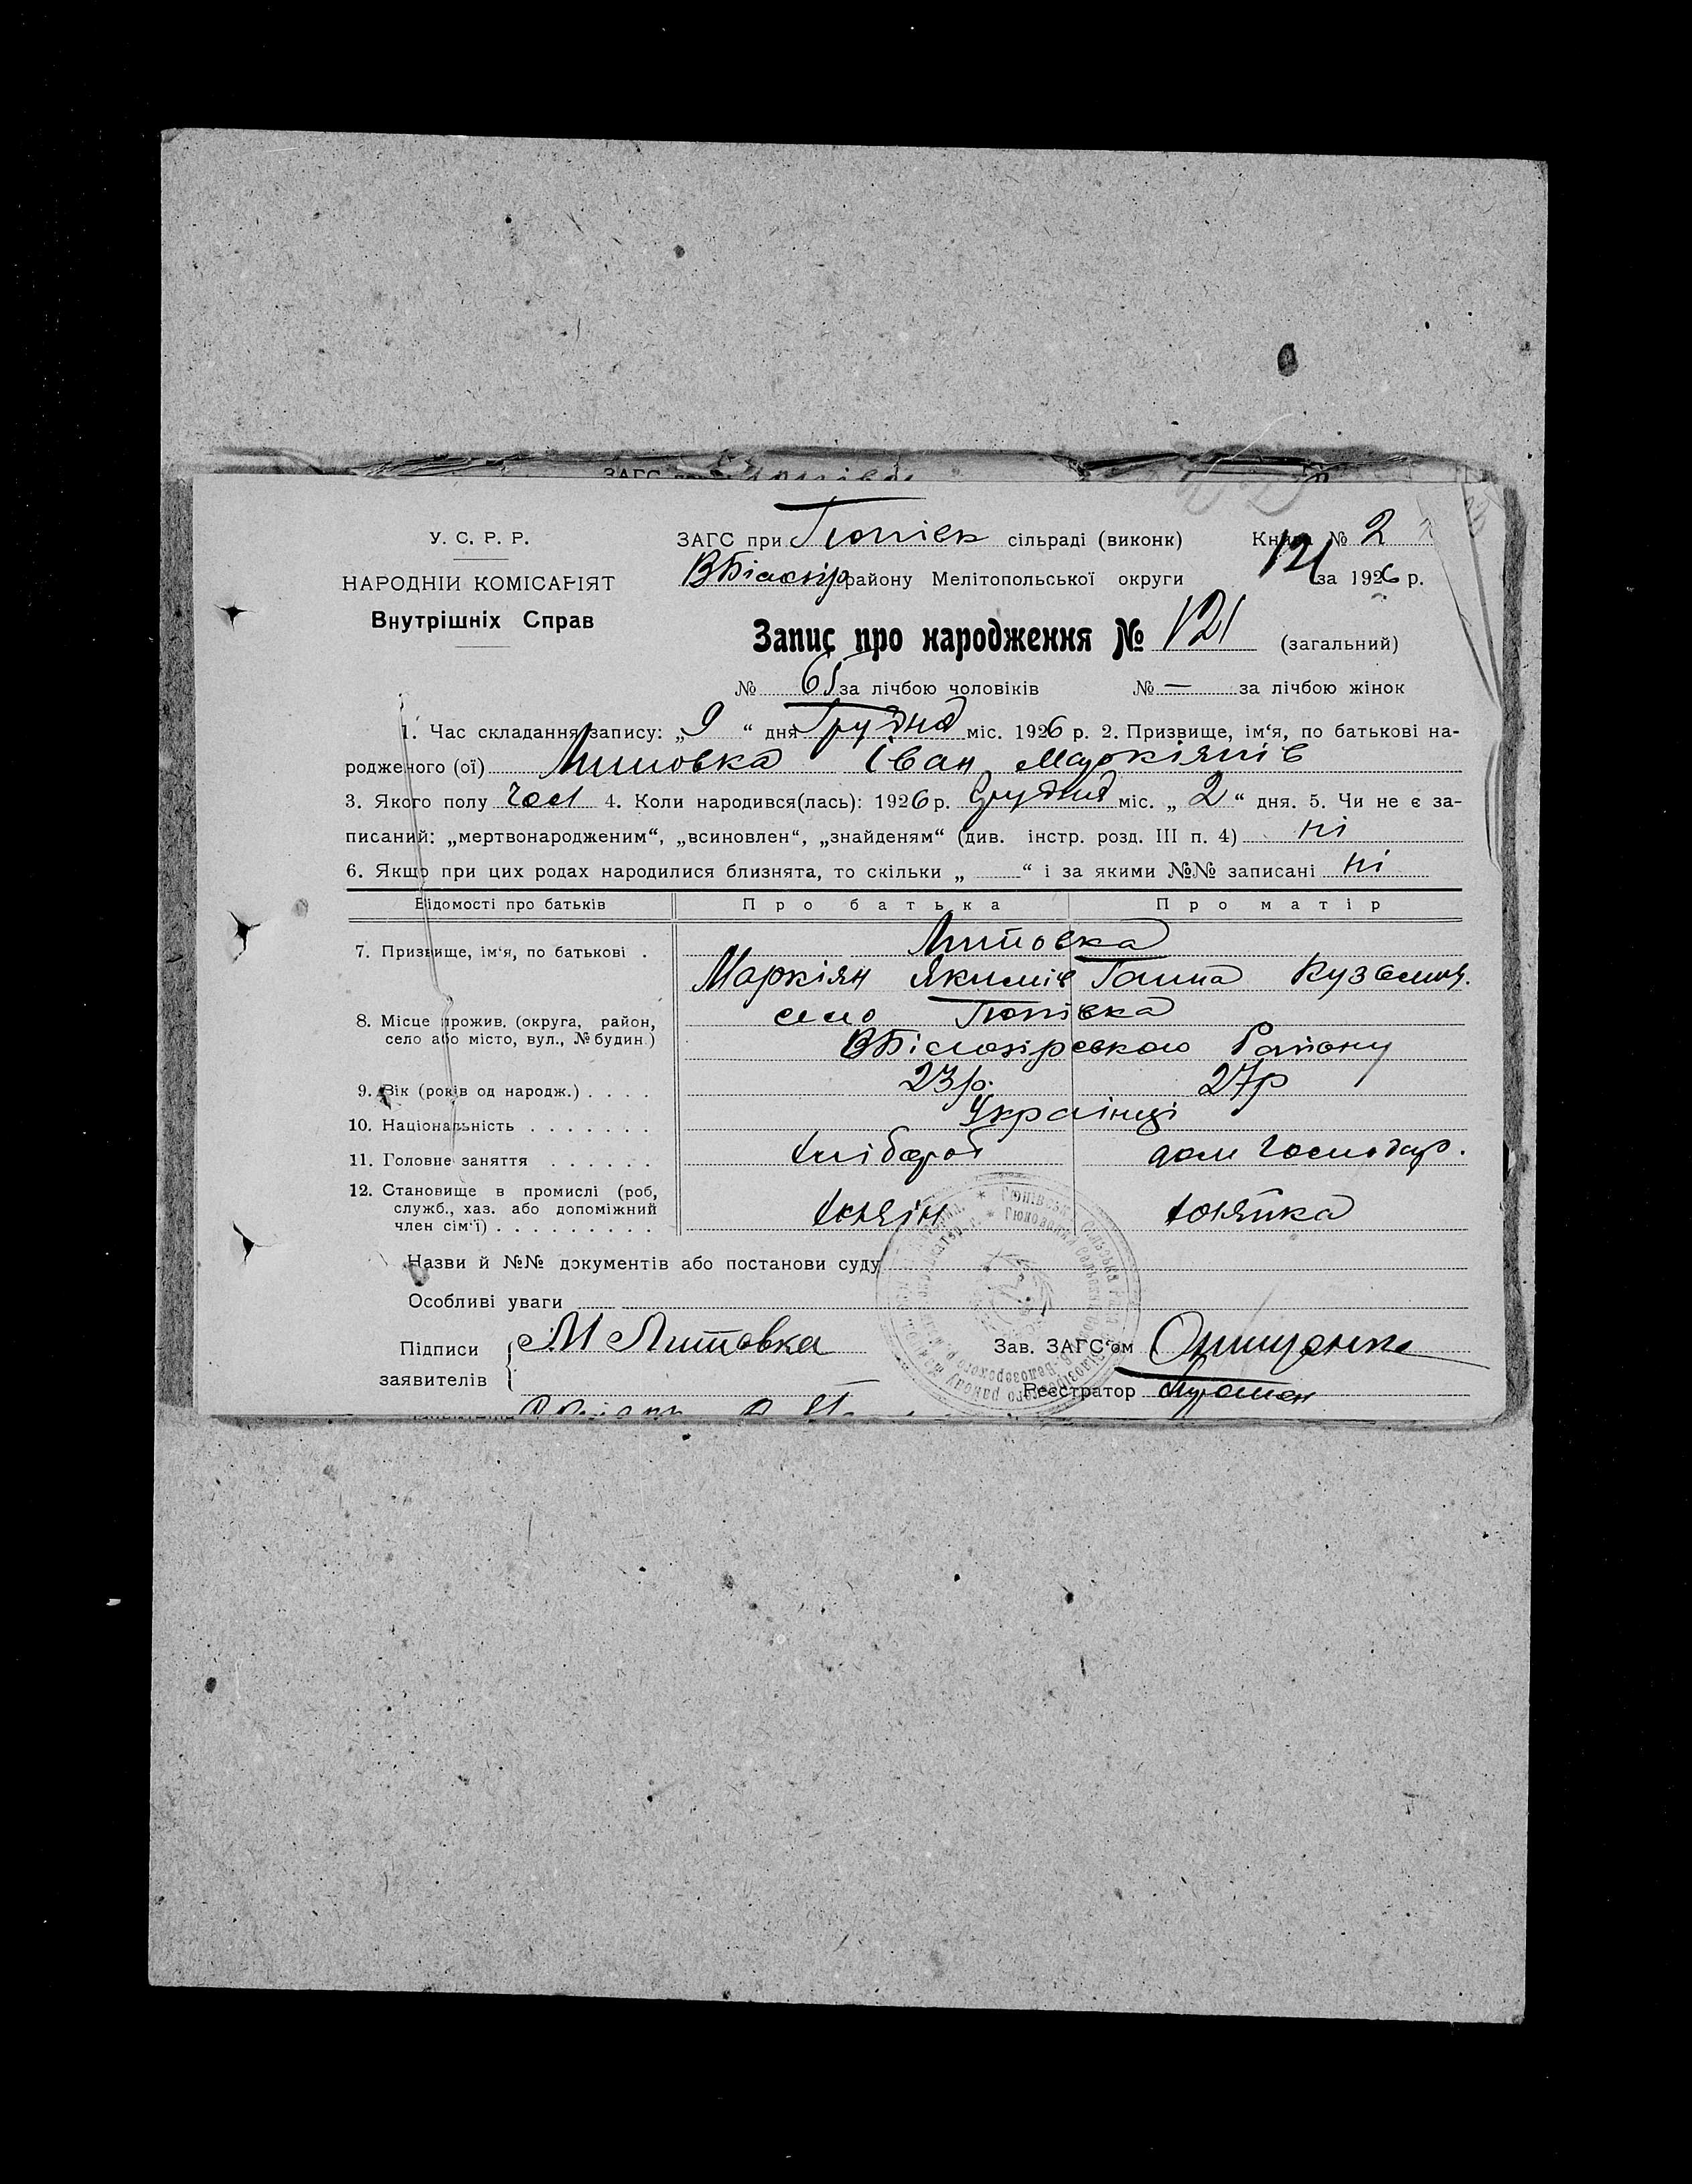 У. С. Р. Р.
НАРОДНІЙ КОМІСАРІЯТ
Внутрішніх Справ
ЗАГС при Гюнівк сільраді (виконк) Книга № 2
ВБілозір району Мелітопольської округи 121 за 1926 р.
Запис про народження № 121 (загальний)
№ 65 за лічбою чоловіків № — за лічбою жінок
1. Час складання запису: „9“ дня Грудня міс. 1926 р. 2. Призвище, ім‘я, по батькові на-
родженого (ої) Литовка Іван Маркіянів
3. Якого полу чол 4. Коли народився(лась): 1926 р. Грудня міс. „2“ дня. 5. Чи не є за-
писаний: „мертвонародженим“, „всиновлен“, „знайденям“ (див. інстр. розд. III п. 4) ні
6. Якщо при цих родах народилися близнята, то скільки „ “ і за якими №№ записані ні
Відомості про батьків Про батька Про матір
7. Призвище, ім‘я, по батькові . Литовка
Маркіян Якимів Ганна Кузьмин.
8. Місце прожив. (округа, район,
село або місто, вул., № будин.)
село Гюнівка
ВБілозірського Району
9. Вік (років од народж.) . . . . 23 р. 27 р
10. Національність . . . . . . . Українці
11. Головне заняття . . . . . . хлібороб дом господар.
12. Становище в промислі (роб,
служб., хаз. або допоміжний
член сім‘ї) . . . . . . . . .
Назви й №№ документів або постанови суду
Особливі уваги
Підписи М Литовка Зав. ЗАГС‘ом Онищенко
заявителів Реєстратор